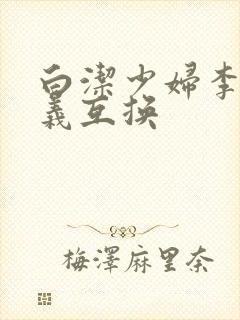 白潔少婦李
義互换
梅澤麻里奈